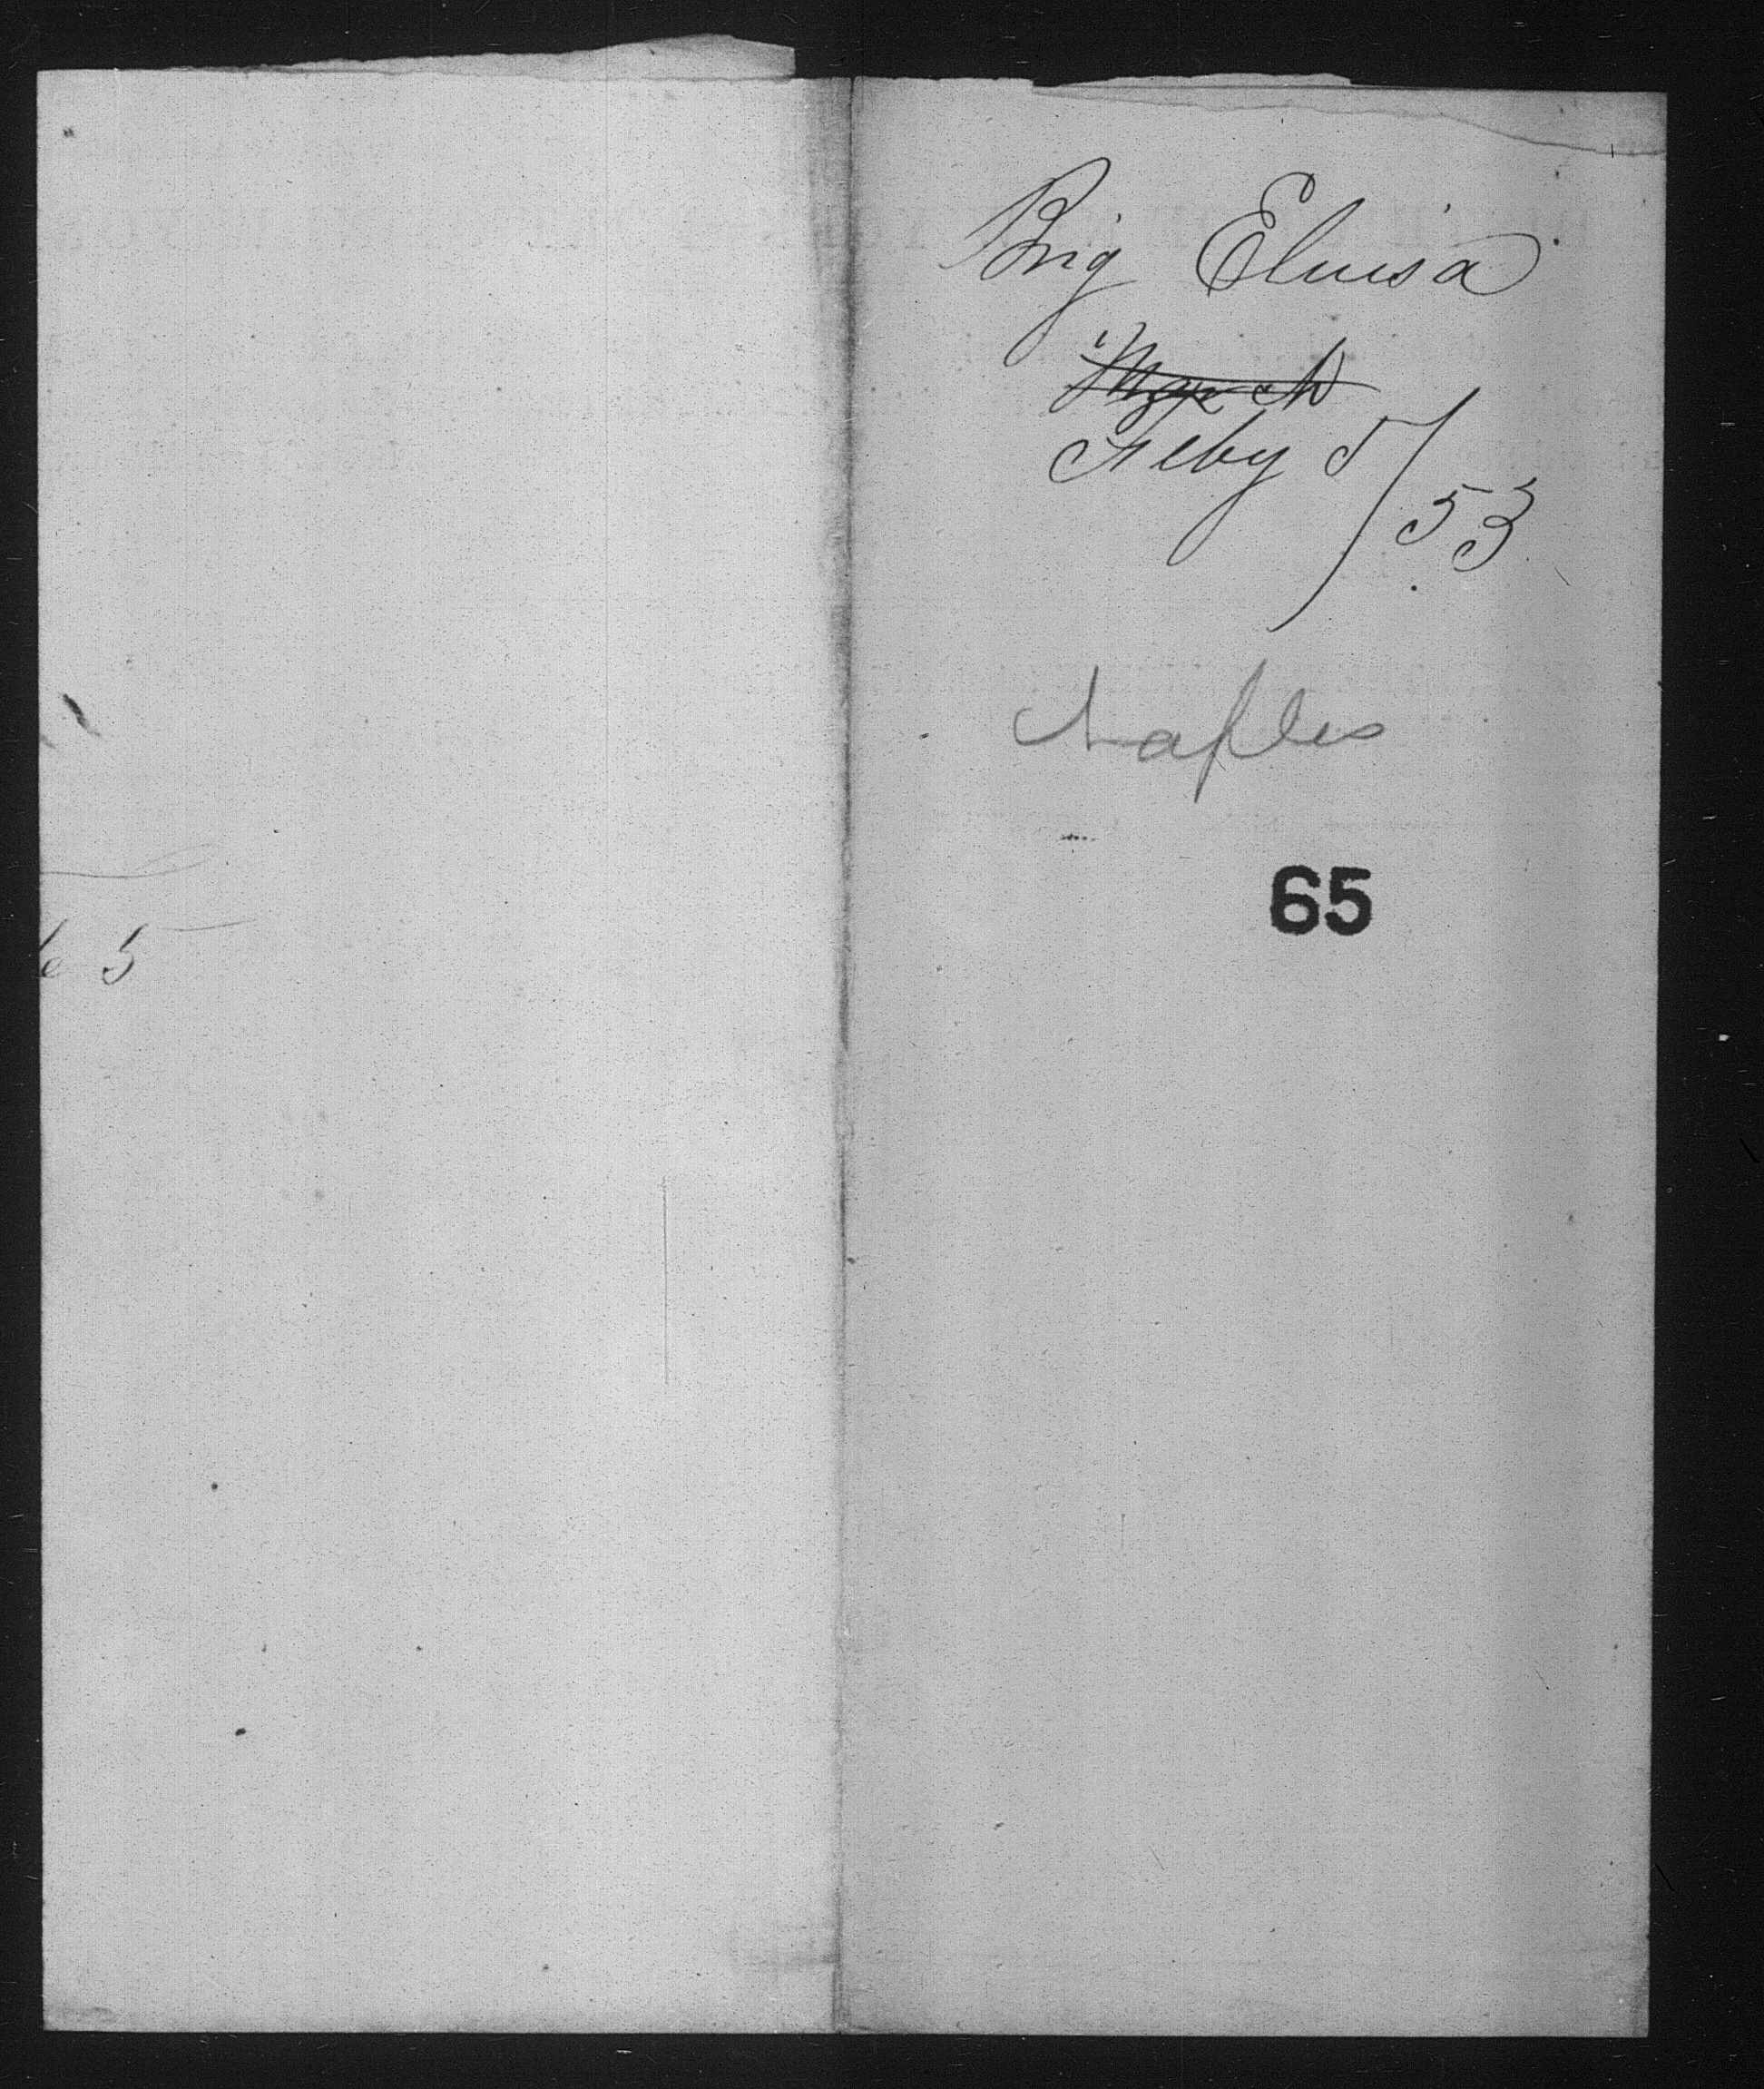 Brig Eluisa
March
Feby 5/53
Naples
65
5